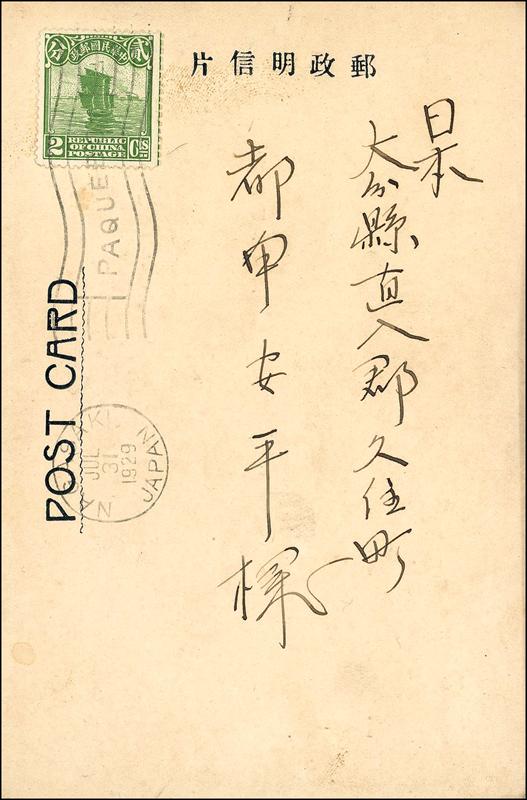 郵政明信片
中華民國郵政
貳
分
REPUBLIC
OF CHINA
POSTAGE
2 Cts
PAQUE
POST CARD
NAGASAKI
JUL
31
1929
JAPAN
日本
大分縣直入郡久住町
都甲安平様